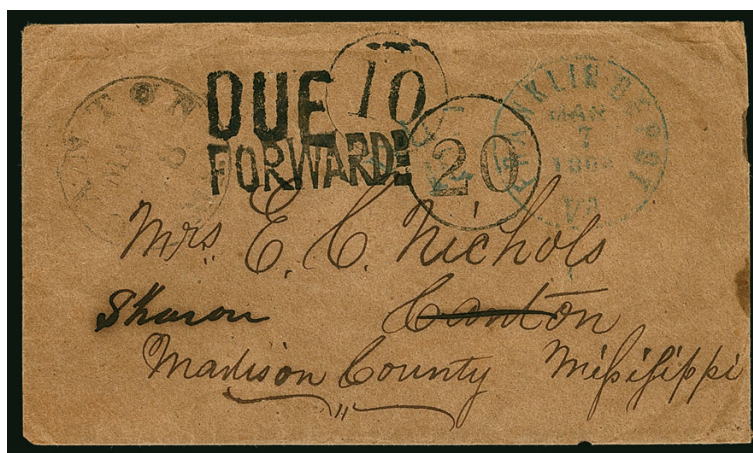 DUE 10
FORWARDED
20
FRANKLIN DEPOT
MAR
7
VA
Mrs. E. C. Nichols
Sharon Canton
Madison County Mississippi